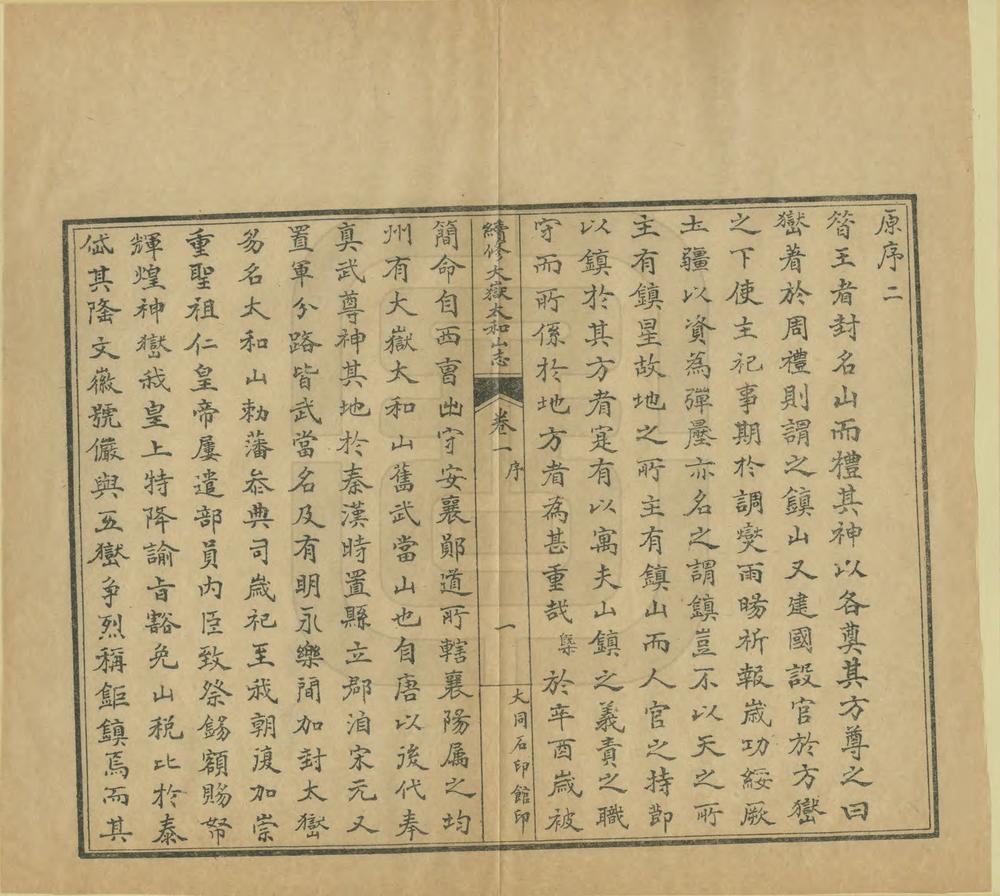 原序二
昝王者封名山而禮其神以各奠其方尊之曰
嶽著於周禮則謂之鎮山又建國設官於方嶽
之下使主祀事期於調爕雨暘祈報歲功綏厥
土疆以資為彈壓亦名之謂鎮豈不以天之所
主有鎮星故地之所主有鎮山而人官之持節
以鎮於其方者寔有以寓夫山鎮之義責之職
守而所係於地方者為甚重哉槩於辛酉歲被
續修大嶽太和山志
卷一
序
一
大同石印館印
簡命自西曹出守安襄鄖道所轄襄陽属之均
州有大嶽太和山舊武當山也自唐以後代奉
真武尊神其地於秦漢時置縣立郡洎宋元又
置軍分路皆武當名及有明永樂間加封太嶽
易名太和山勅藩叅典司歲祀至我朝復加崇
重聖祖仁皇帝屢遣部員內臣致祭錫額賜帑
輝煌神嶽我皇上特降諭旨豁免山稅比於泰
岱其隆文徽號儼與五嶽爭烈稱鉅鎮焉而其